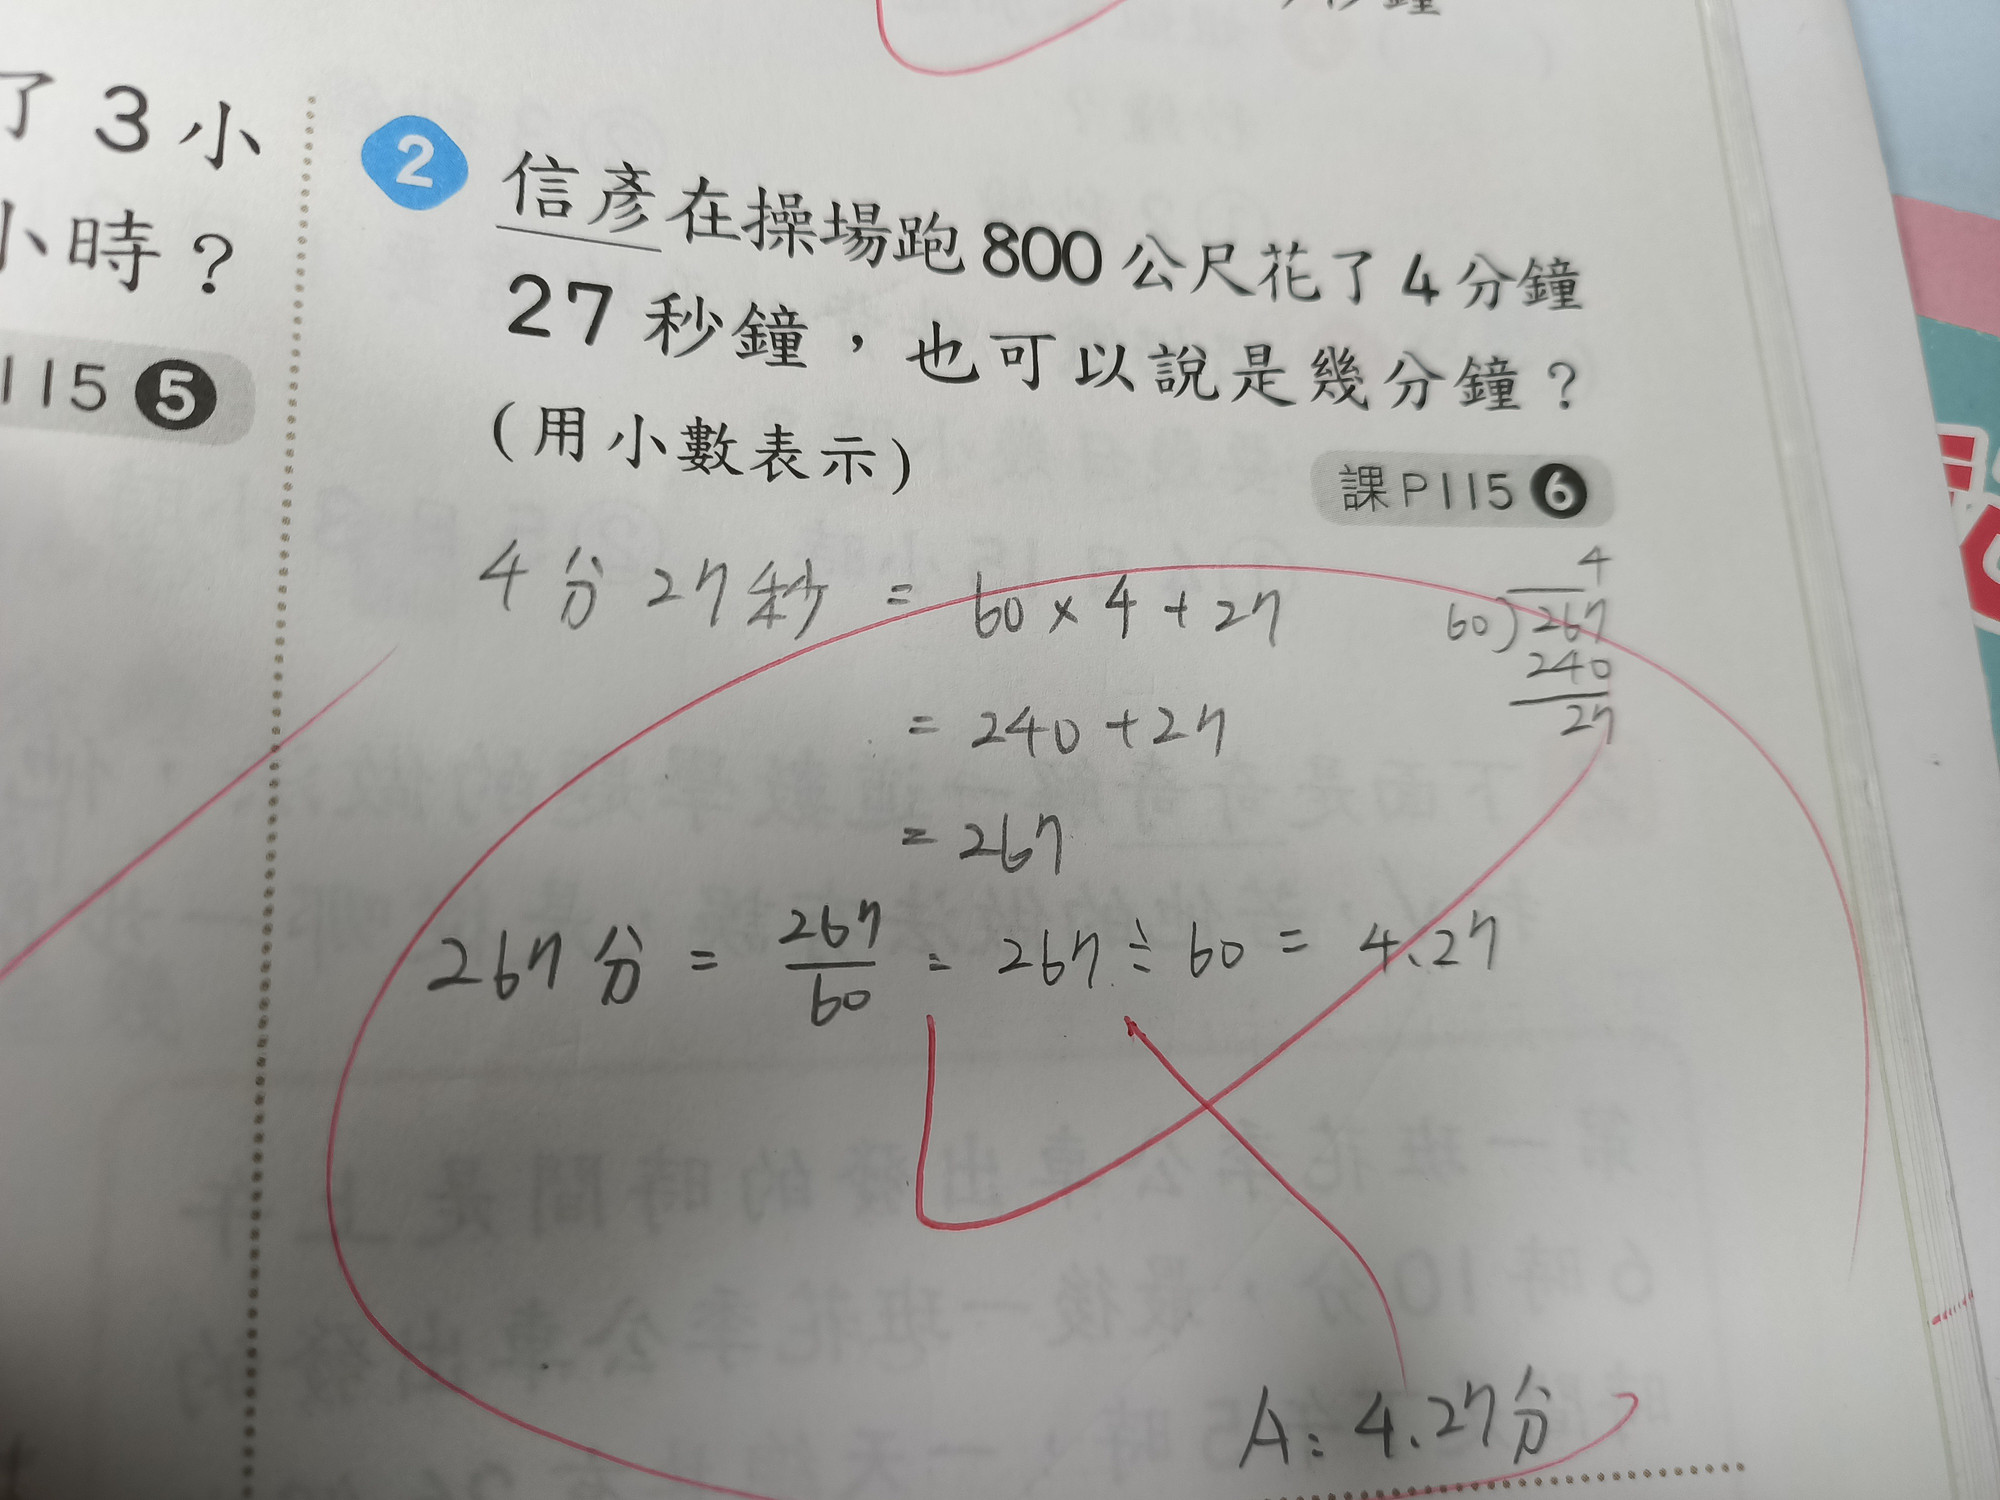 了3小
小時？
115 5
2 信彥在操場跑800公尺花了4分鐘
27秒鐘，也可以說是幾分鐘？
（用小數表示）
課P115 6
4分27秒 = 60×4+27
= 240+27
= 267
4
60)267
240
27
267分 = 267/60 = 267÷60 = 4.27
A: 4.27分